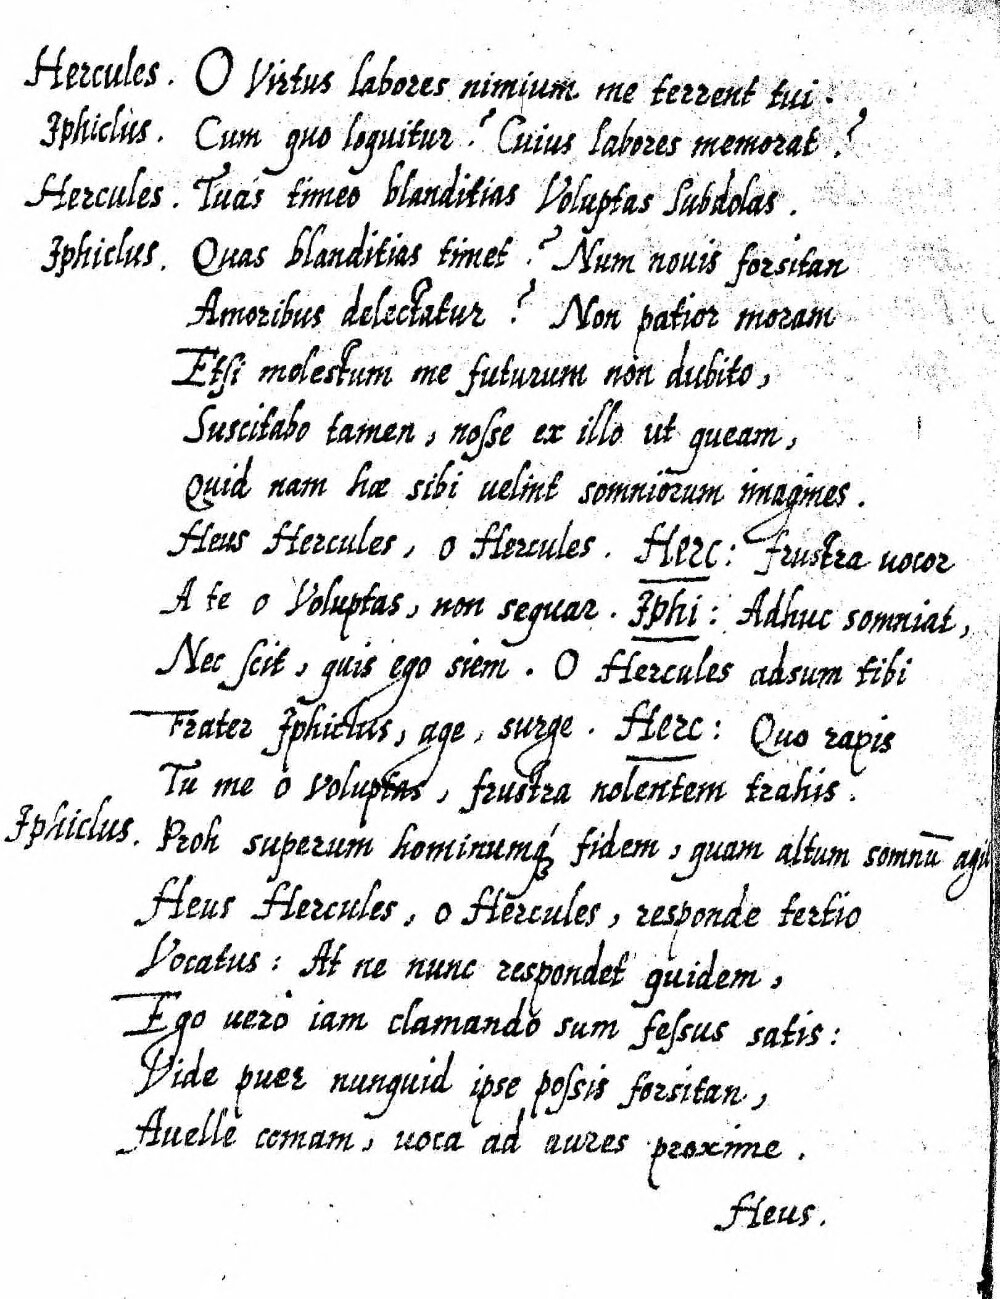 Hercules. O Virtus labores nimium me terrent tui.
Iphiclus. Cum quo loquitur? Cuius labores memorat?
Hercules. Tuas timeo blanditias Voluptas subdolas.
Iphiclus. Quas blanditias timet? Num nouis forsitan
Amoribus delectatur? Non patior moram
Etsi molestum me futurum non dubito,
Suscitabo tamen, nosse ex illo ut queam,
Quid nam hæ sibi uelint somniorum imagines.
Heus Hercules, o Hercules. Herc: frustra uocor
A te o Voluptas, non sequar. Iphi: Adhuc somniat,
Nec scit, quis ego siem. O Hercules adsum tibi
Frater Iphiclus, age, surge. Herc: Quo rapis
Tu me o Voluptas, frustra nolentem trahis.
Iphiclus. Proh superum hominumq́ꝫ fidem, quam altum somnū
Heus Hercules, o Hercules, responde tertio
Vocatus: At ne nunc respondet quidem,
Ego uerò iam clamando sum fessus satis:
Vide puer nunquid ipse possis forsitan,
Auelle comam, uoca ad aures proxime.
Heus.